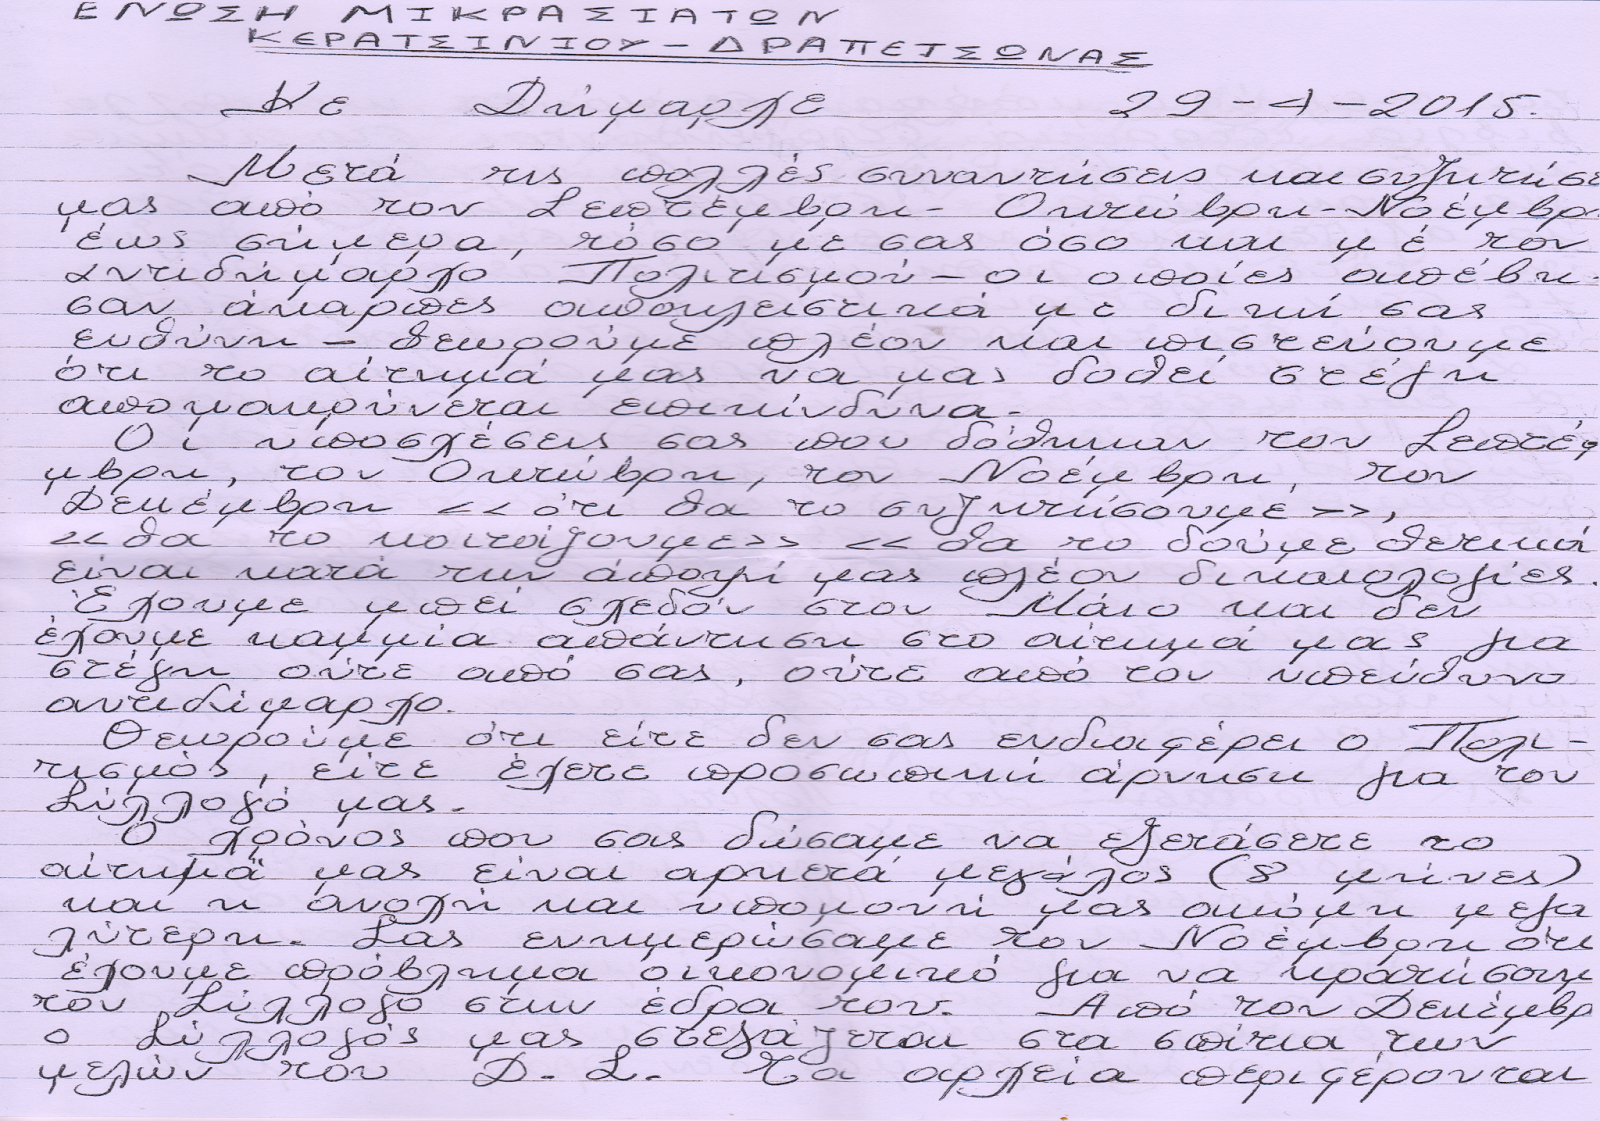 ΕΝΩΣΗ ΜΙΚΡΑΣΙΑΤΩΝ
ΚΕΡΑΤΣΙΝΙΟΥ - ΔΡΑΠΕΤΣΩΝΑΣ
Κε Δήμαρχε 29-4-2015.
Μετά τις πολλές συναντήσεις και συζητήσε
μας απο τον Σεπτέμβρη - Οκτώβρη - Νοέμβρ
έως σήμερα, τόσο με σας όσο και μέ τον
αντιδήμαρχο Πολιτισμού - οι οποίες απέβη-
σαν άκαρπες αποκλειστικά με δική σας
ευθύνη - θεωρούμε πλέον και πιστεύουμε
ότι το αίτημά μας να μας δοθεί στέγη
απομακρύνεται επικίνδυνα.
Οι υποσχέσεις σας που δόθηκαν τον Σεπτέμ
μβρη, τον Οκτώβρη, τον Νοέμβρη, τον
Δεκέμβρη << ότι θα το συζητήσουμε >>,
<< θα το κοιτάξουμε >> << θα το δούμε θετικά
είναι κατά την άποψή μας πλέον δικαιολογίες.
Έχουμε μπεί σχεδόν στον Μάιο και δεν
έχουμε καμμία απάντηση στο αίτημά μας για
στέγη ούτε από σας, ούτε από τον υπεύθυνο
αντιδήμαρχο.
Θεωρούμε ότι είτε δεν σας ενδιαφέρει ο Πολι-
τισμός, είτε έχετε προσωπική άρνηση για τον
Σύλλογό μας.
Ο χρόνος που σας δώσαμε να εξετάσετε το
αίτημά μας είναι αρκετά μεγάλος (8 μήνες)
και η ανοχή και υπομονή μας ακόμη μεγα
λύτερη. Σας ενημερώσαμε τον Νοέμβρη ότι
έχουμε πρόβλημα οικονομικό για να κρατήσουμ
τον Σύλλογο στην έδρα του. Από τον Δεκέμβρ
ο Σύλλογός μας στεγάζεται στα σπίτια των
μελών του Δ.Σ. Τα αρχεία περιφέρονται